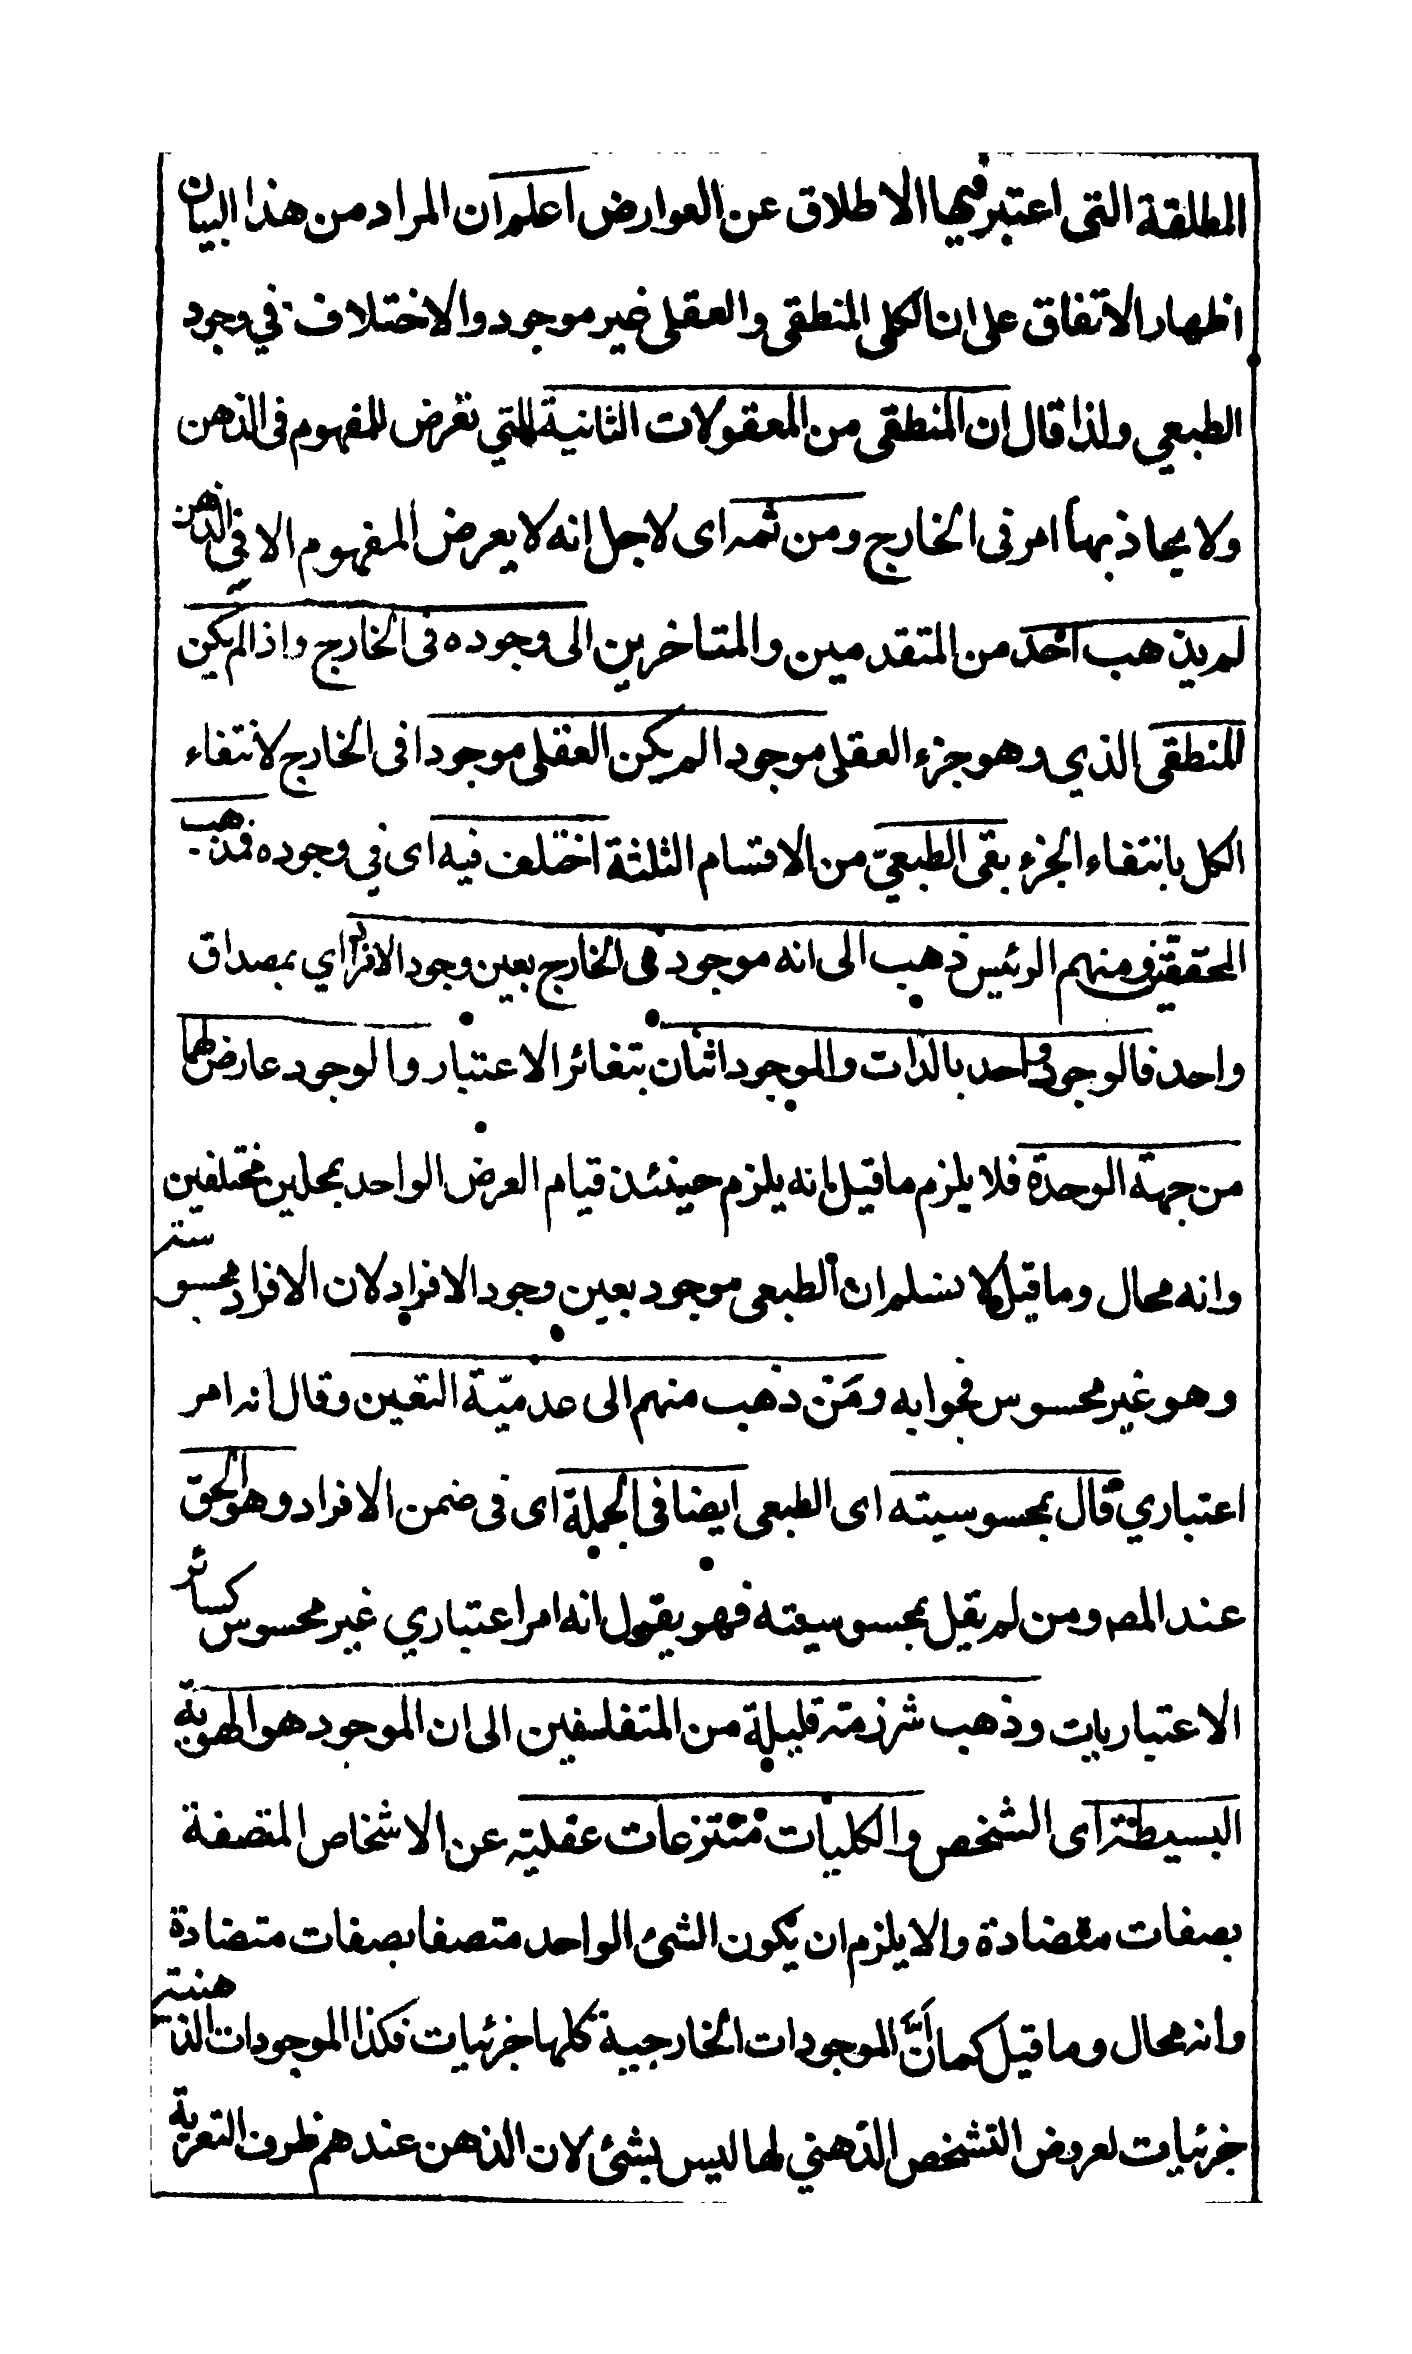 المطلقة التى اعتبر فيها الاطلاق عن العوارض اعلم ان المراد من هذا البيان
اظهار الاتفاق على ان الكلى المنطقى والعقلى غير موجود والاختلاف فى وجود
الطبعي ولذا قال ان المنطقى من المعقولات الثانية للتي تعرض للمفهوم فى الذهن
ولا يحاذ بها امر فى الخارج ومن ثمه اى لاجل انه لا يعرض المفهوم الا في الذهن
لم يذهب احد من المتقدمين والمتاخرين الى وجوده فى الخارج واذا لم يكن
المنطقى الذي هو جزء العقلى موجود الم يكن العقلى موجودا فى الخارج لانتفاء
الكل بانتفاء الجزء بقى الطبعيّ من الاقسام الثلثة اختلف فيه اى في وجوده فمذهب
المحققين ومنهم الرئيس ذهب الى انه موجود فى الخارج بعين وجود الافراد اي بمصداق
واحد فالوجود واحد بالذات والموجود اثنان بتغائر الاعتبار والوجود عارض لهما
من جهة الوحدة فلا يلزم ما قيل انه يلزم حينئذ قيام العرض الواحد بمحلين مختلفين
وانه محال وما قيل لا نسلم ان الطبعى موجود بعين وجود الافراد لان الافراد محسوسة
وهو غير محسوس فجوابه ومَن ذهب منهم الى عدميّة التعين وقال انه امر
اعتباري قال بمحسوسيته اى الطبعى ايضا فى الجملة اى فى ضمن الافراد وهو الحق
عند المصـ ومن لم يقل بمحسوسيته فهو يقول انه امر اعتباري غير محسوس كسائر
الاعتباريات وذهب شرزمة قليلة من المتفلسفين الى ان الموجود هو الهوية
البسيطة اى الشخص والكليات منتزعات عقلية عن الاشخاص المتصفة
بصفات متضادة والا يلزم ان يكون الشئ الواحد متصفا بصفات متضادة
وانه محال وما قيل كما انَّ الموجودات الخارجية كلها جزئيات فكذا الموجودات الذهنية
جزئيات لعروض التشخص الذهني لها ليس بشئ لان الذهن عندهم ظرف التعرية